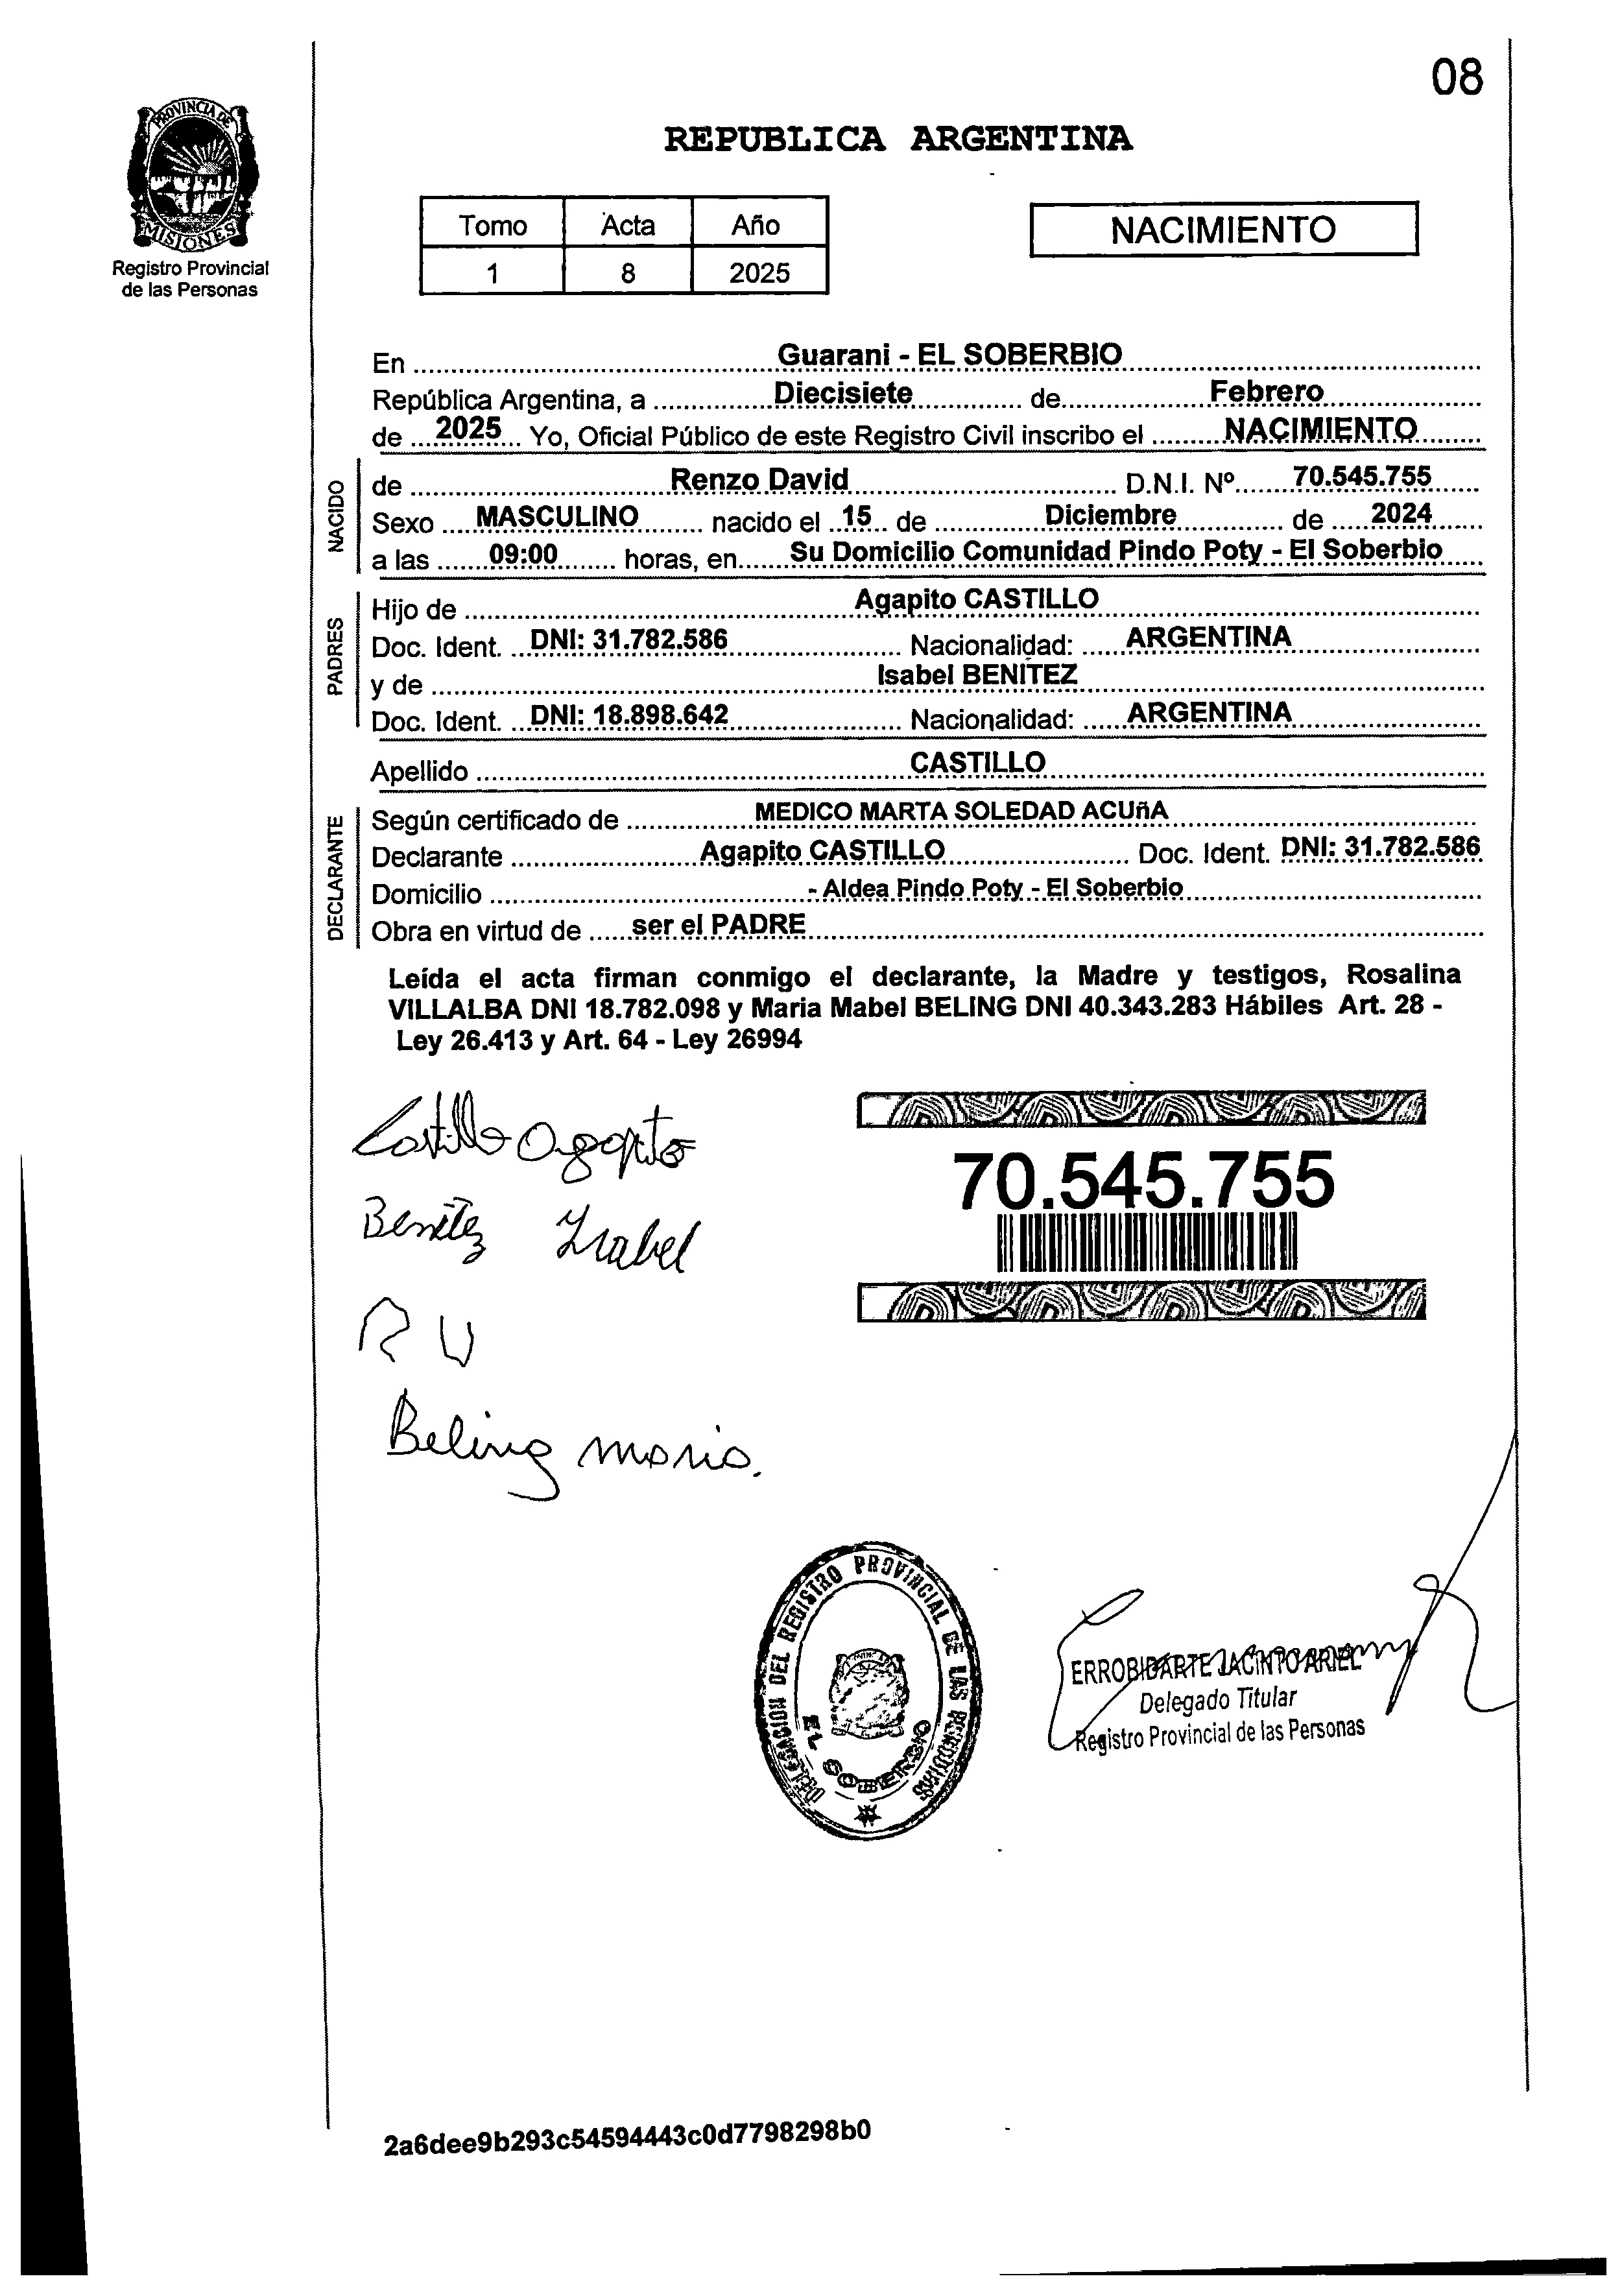 08
PROVINCIA DE
MISIONES
Registro Provincial
de las Personas
REPUBLICA ARGENTINA
Tomo Acta Año
1 8 2025
NACIMIENTO
En Guarani - EL SOBERBIO
República Argentina, a Diecisiete de Febrero
de 2025 Yo, Oficial Público de este Registro Civil inscribo el NACIMIENTO
NACIDO
de Renzo David D.N.I. Nº 70.545.755
Sexo MASCULINO nacido el 15 de Diciembre de 2024
a las 09:00 horas, en Su Domicilio Comunidad Pindo Poty - El Soberbio
PADRES
Hijo de Agapito CASTILLO
Doc. Ident. DNI: 31.782.586 Nacionalidad: ARGENTINA
y de Isabel BENÍTEZ
Doc. Ident. DNI: 18.898.642 Nacionalidad: ARGENTINA
Apellido CASTILLO
DECLARANTE
Según certificado de MEDICO MARTA SOLEDAD ACUñA
Declarante Agapito CASTILLO Doc. Ident. DNI: 31.782.586
Domicilio - Aldea Pindo Poty - El Soberbio
Obra en virtud de ser el PADRE
Leída el acta firman conmigo el declarante, la Madre y testigos, Rosalina
VILLALBA DNI 18.782.098 y Maria Mabel BELING DNI 40.343.283 Hábiles Art. 28 -
Ley 26.413 y Art. 64 - Ley 26994
Castillo Agapito
Benitez Isabel
R V
Beling maria.
70.545.755
DELEGACION DEL REGISTRO PROVINCIAL DE LAS PERSONAS
EL SOBERBIO
ERROBIDARTE JACINTO ARIEL
Delegado Titular
Registro Provincial de las Personas
2a6dee9b293c54594443c0d7798298b0